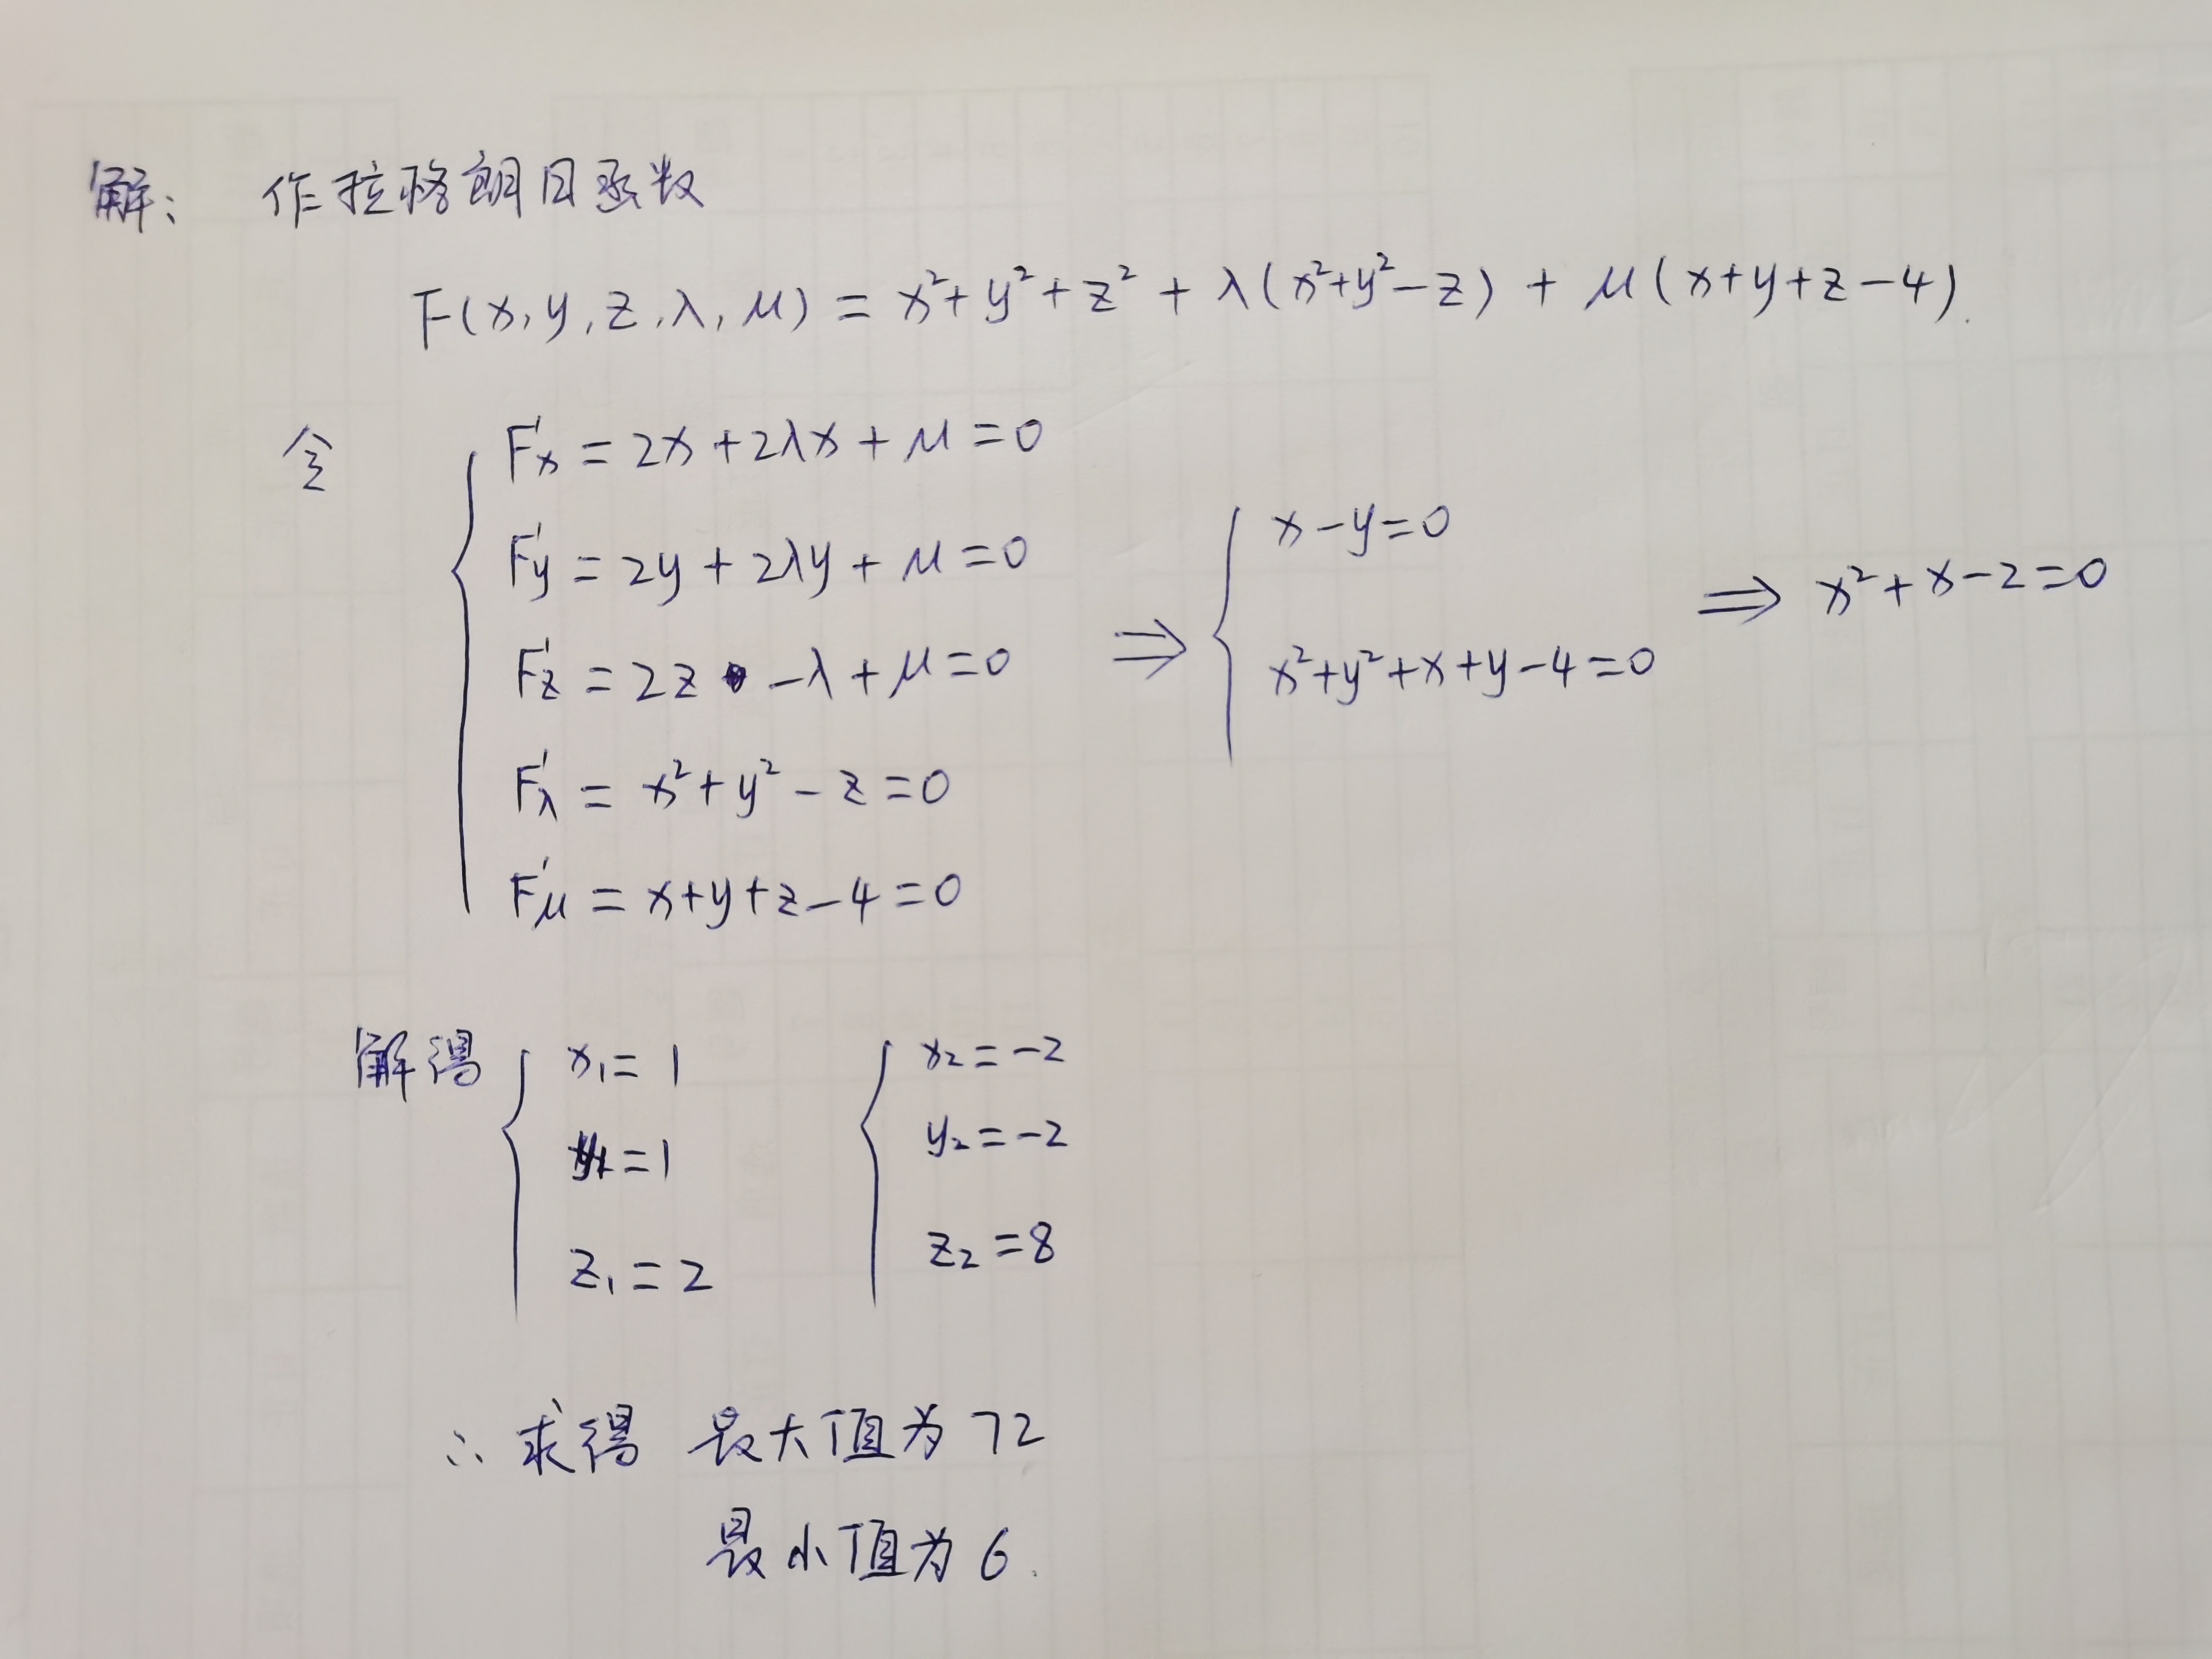 解: 作拉格朗日函数
F(x,y,z,λ,μ) = x²+y²+z²+λ(x²+y²-z)+μ(x+y+z-4).
令 F'x = 2x+2λx+μ=0
F'y = 2y+2λy+μ=0
F'z = 2z-λ+μ=0
F'λ = x²+y²-z=0
F'μ = x+y+z-4=0
⇒ x-y=0
x²+y²+x+y-4=0
⇒ x²+x-2=0
解得 x₁=1 x₂=-2
y₁=1 y₂=-2
z₁=2 z₂=8
∴ 求得 最大值为 72
最小值为 6.